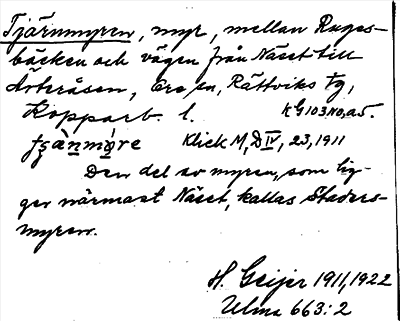 Tjärnmyren, myr, mellan Ruges-
bäcken och vägen från Näset till
Arteråsen, Ore sn, Rättviks tg,
Kopparb. l. KG103no,a5.
Klick M, D IV, 23, 1911
Den del av myren, som lig-
ger närmast Näset, kallas Staders-
myren.
H. Geijer 1911, 1922
Ulma 663:2